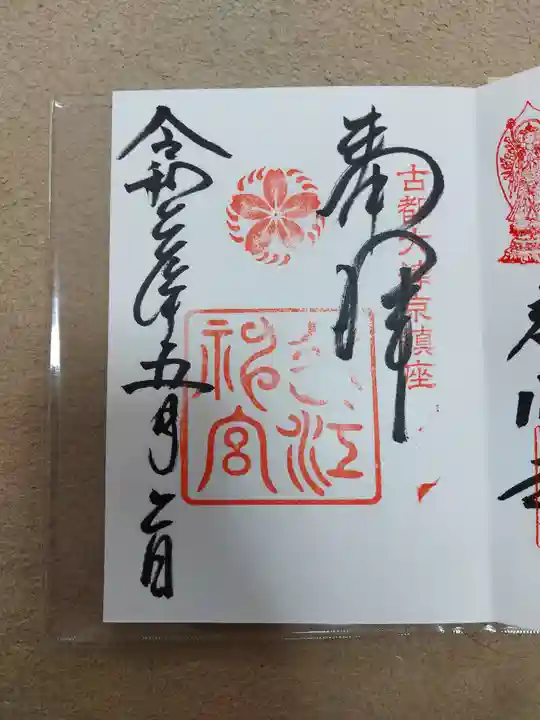 古都大津京鎮座
奉拝
近江
神宮
令和六年五月二日